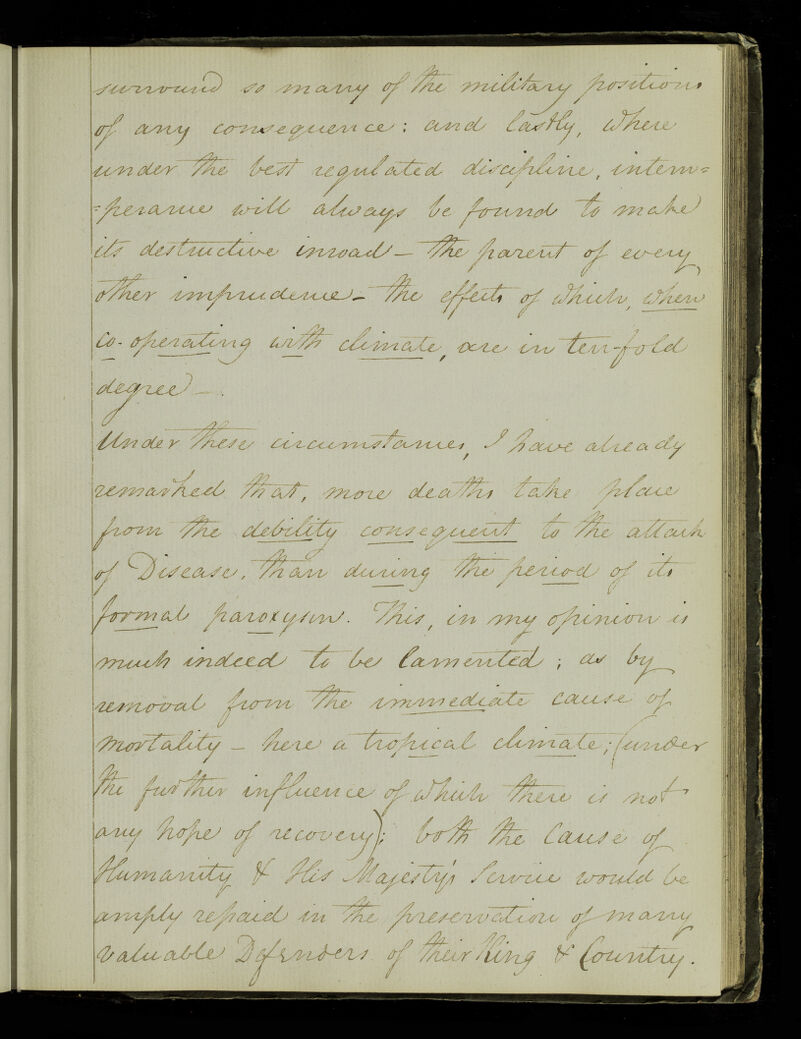 surround so many of the military positions
of any consequence: and lastly, where
under the best regulated discipline, intem=
=perance will always be found to make
its destructive inroad – the parent of every
other imprudence – the effects of which, when
co-operating with climate, are in ten-fold
degree –.
Under these circumstances, I have already
remarked that, more deaths take place
from the debility consequent to the attack
of Disease, than during the period of its
formal paroxysm. This, in my opinion is
much indeed to be lamented; as by
removal from the immediate cause of
mortality – here a tropical climate; (under
the further influence of which there is not
any hope of recovery); both the Cause of
Humanity & His Majesty's Service would be
amply repaid in the preservation of many
valuable Defenders of their King & Country.